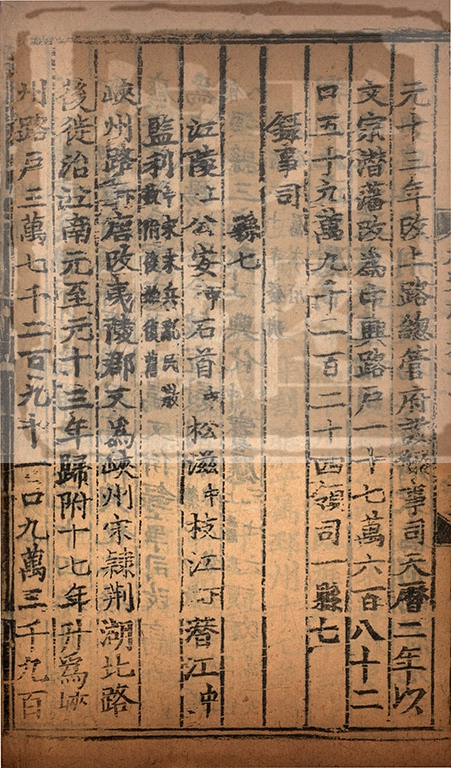 元十三年改上路總管府設錄事司天曆二年以
文宗潛藩改爲中興路戶一十七萬六百八十二
口五十九萬九千二百二十四領司一縣七
錄事司
縣七
江陵上公安中石首中松滋中枝江下潛江中
監利中宋末兵亂民散歸附後始復舊
峽州路下唐改夷陵郡又爲峽州宋隸荆湖北路
後徙治江南元至元十三年歸附十七年升爲峽
州路戶三萬七千二百九十一口九萬三千九百